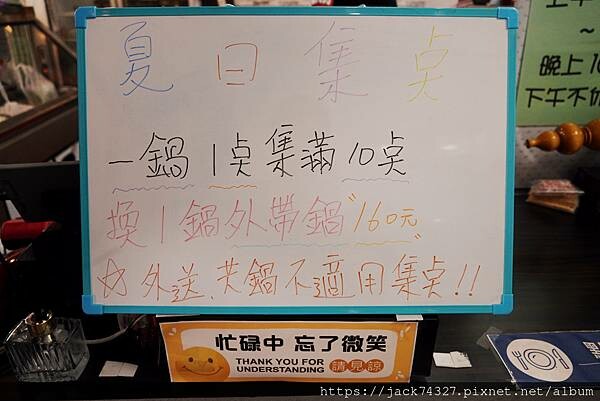 夏日集点
一鍋1点集滿10点
換1鍋外帶鍋"160元"
☆外送、共鍋不適用集点!!
忙碌中 忘了微笑
THANK YOU FOR
UNDERSTANDING
請見諒
~
晚上10
下午不休
https://jack74327.pixnet.net/album